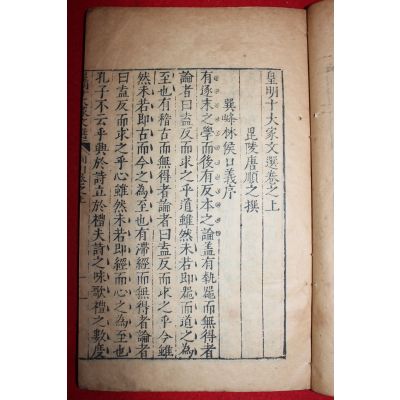 皇明十大家文選卷之上
毘陵唐順之撰
巽峰林侯口義序
有逐末之學而後有反本之論蓋有執噐而無得者
論者曰盍反而求之乎道雖然未若即噐而道之為
至也有稽古而無得者論者曰盍反而求之乎今雖
然未若即古而今之為至也有滯經而無得者論者
曰盍反而求之乎心雖然未若即經而心之為至也
孔子不云乎興於詩立於禮夫詩之咏歌禮之數度